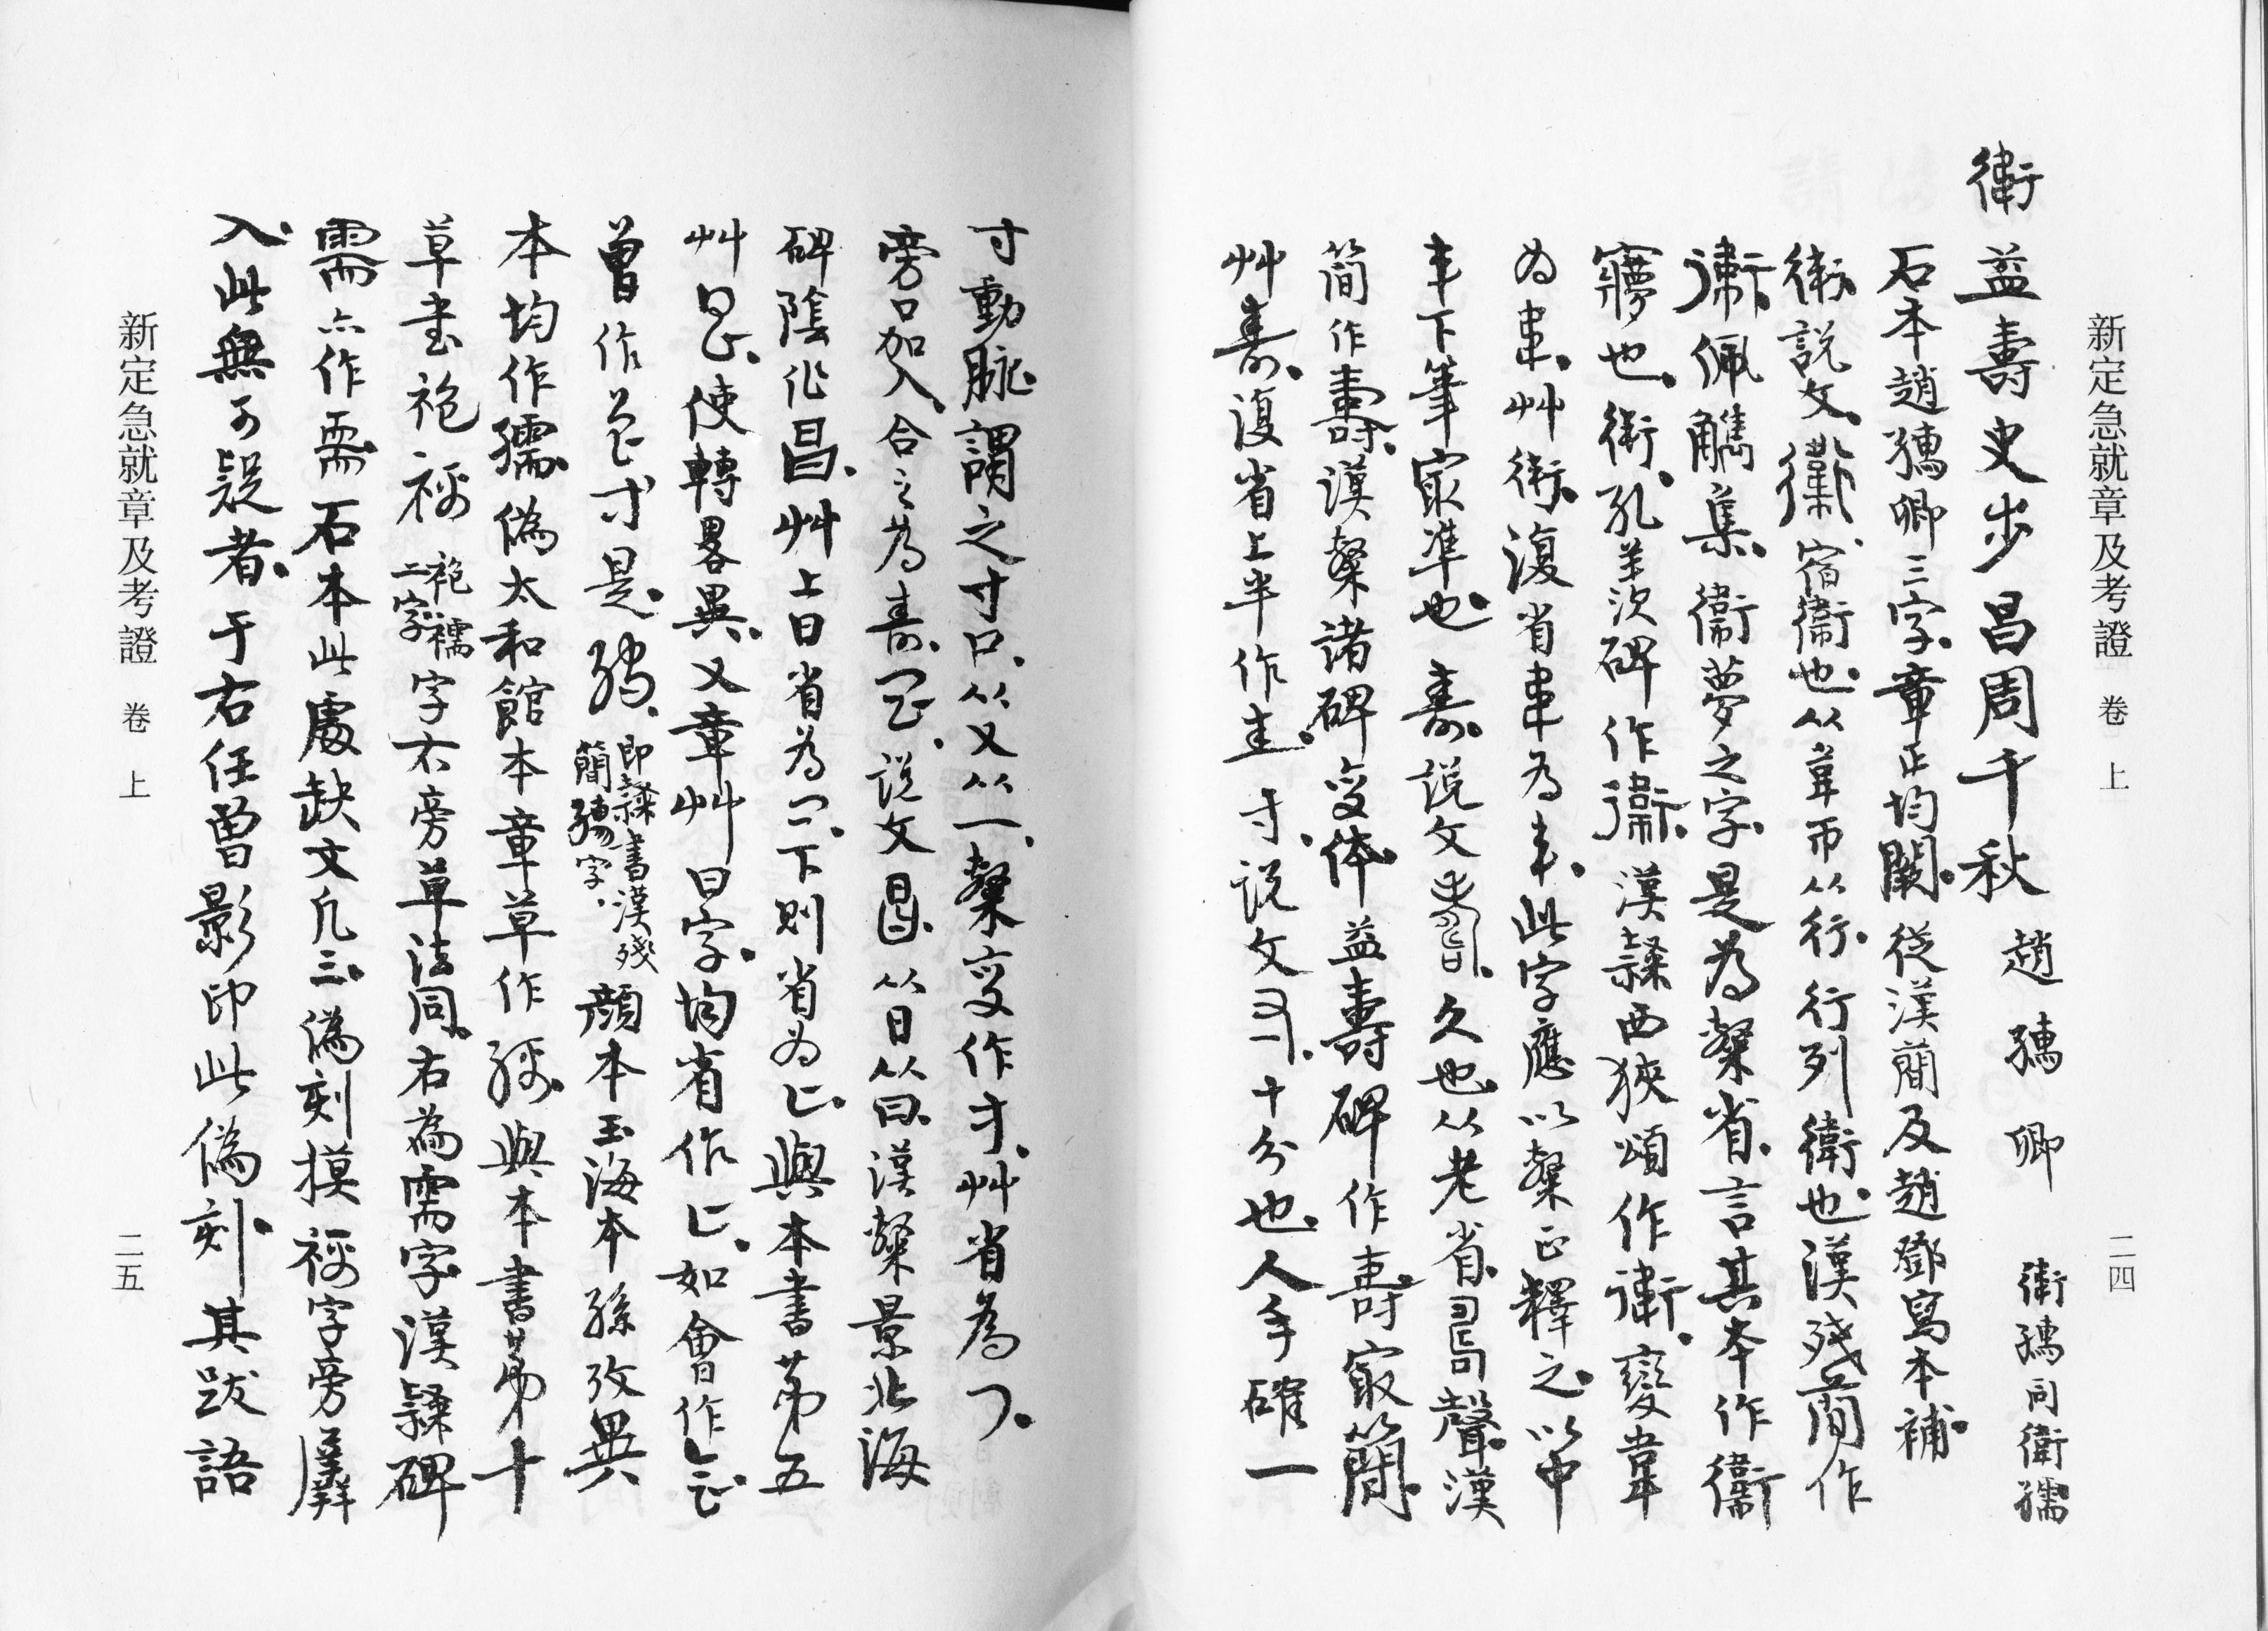 新定急就章及考證 卷上 二四
衛益壽史步昌周千秋 趙孺卿 衛孺同衛孺
石本趙孺卿三字章正均闕從漢簡及趙鄧寫本補
衛說文宿衛也从韋帀从行行列衛也漢殘簡作
佩觿集衛夢之字是為隸省言其本作衛
寢也衛孔羨碑作衛漢隸西狹頌作衛變韋
為車艸衛復省車為丰此字應以隸正釋之以中
丰下筆寂準也壽說文久也从老省聲漢
簡作壽漢隸諸碑變体益壽碑作壽寂簡
艸壽復省上半作圭寸說文十分也人手確一
寸動脈謂之寸口从又从一隸變作寸艸省為
旁口加入合之為壽 說文昌从日从曰漢隸景北海
碑陰作昌艸上日省為 下則省為 與本書第五
艸 使轉畧異又章艸曰字均省作 如會作
曾作 才是 孺 即隸書漢殘簡孺字 顏本玉海本孫攷異
本均作孺偽太和館本章草作孺與本書第十
草書袍襦 袍襦二字 字右旁草法同右為需字漢隸碑
需亦作需石本此處缺文凡三偽刻摸襦字旁羼
入此無可疑者于右任曾影印此偽刻其跋語
新定急就章及考證 卷上 二五